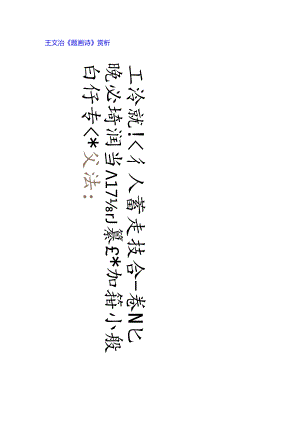 王文治《题画诗》赏析
工泠就!<彳人蓄走技合-卷N匕
晚必埼润当Λ17⅟₈rJ纂£*加箝小般
白仔专<*父法: